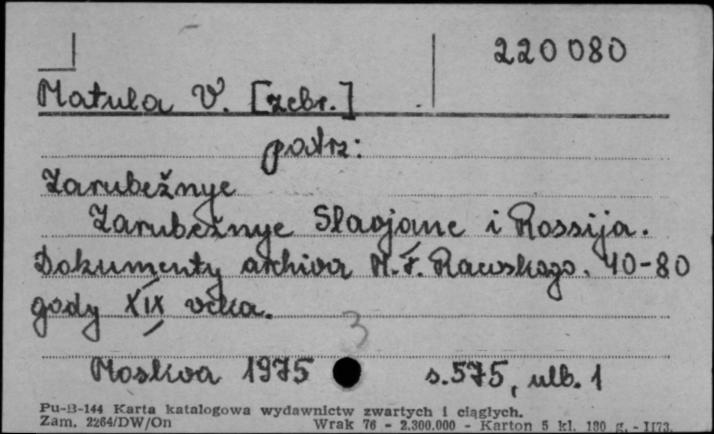 220 080
Matula V. [zebr.]
patrz:
Zarubežnye
Zarubežnye Slavjane i Rossija.
Dokumenty archiva M.F. Raevskogo. 40-80
gody XIX veka.
3
Moskva 1975 s.575, ulb. 1
Pu-B-144 Karta katalogowa wydawnictw zwartych i ciągłych.
Zam. 2264/DW/On Wrak 76 - 2.300.000 - Karton 5 kl. 180 g. - II73.